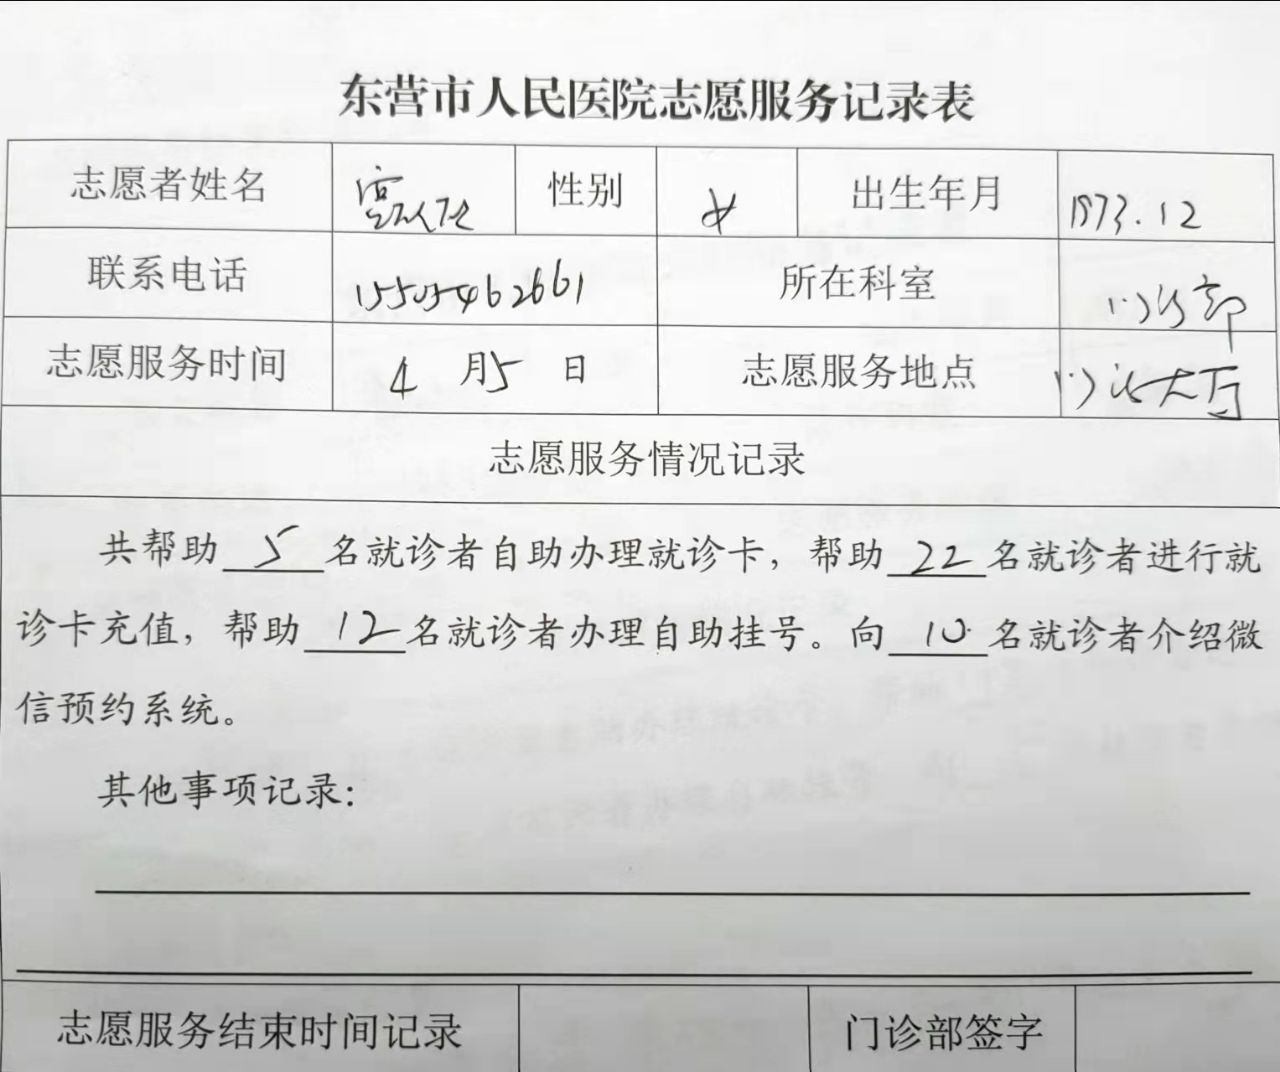 东营市人民医院志愿服务记录表
志愿者姓名 性别 女 出生年月 1973.12
联系电话 15505462661 所在科室 门诊部
志愿服务时间 4月5日 志愿服务地点 门诊大厅
志愿服务情况记录
共帮助5名就诊者自助办理就诊卡，帮助22名就诊者进行就
诊卡充值，帮助12名就诊者办理自助挂号。向10名就诊者介绍微
信预约系统。
其他事项记录：
志愿服务结束时间记录 门诊部签字